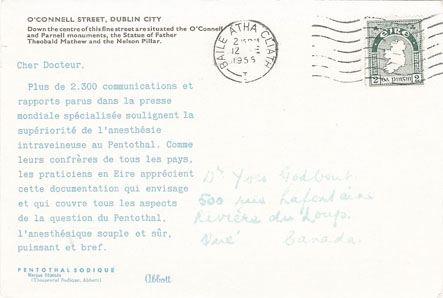 O'CONNELL STREET, DUBLIN CITY
Down the centre of this fine street are situated the O'Connell
and Parnell monuments, the Statue of Father
Theobald Mathew and the Nelson Pillar.
BAILE ÁTHA CLIATH
12
1955
éire
2 2
Cher Docteur.
Plus de 2.300 communications et
rapports parus dans la presse
mondiale spécialisée soulignent la
supériorité de l'anesthésie
intraveineuse au Pentothal. Comme
leurs confrères de tous les pays,
les praticiens en Eire apprécient
cette documentation qui envisage
et qui couvre tous les aspects
de la question du Pentothal,
l'anesthésique souple et sûr,
puissant et bref.
Dr Yves Godbout
500 rue Lafontaine
Rivière du Loup.
Canada.
PENTOTHAL SODIQUE
Marque Déposée
(Thiopental Sodique, Abbott)
Abbott